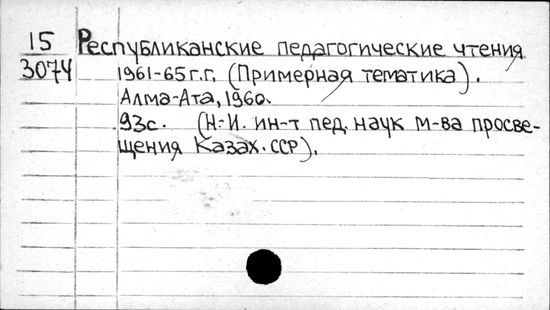 15 Республиканские педагогические чтения
3074 1961-65 г.г. (Примерная тематика).
Алма-Ата, 1960.
93с. (Н.-И. ин-т пед. наук м-ва просве-
щения Казах. ССР).